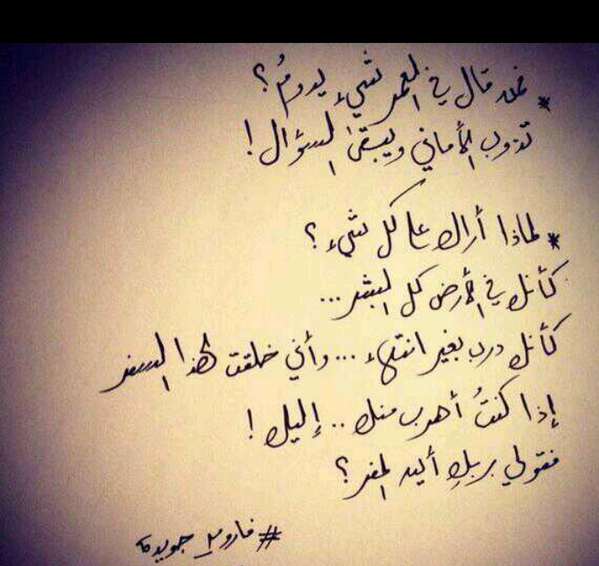 * فمن قال في العمر شيء يدومُ؟
تذوب الأماني ويبقى السؤال!
* لماذا أراك على كل شيء؟
كأنك في الأرض كل البشر...
كأنك درب بغير انتهاء... وأني خلقت لهذا السفر
إذا كنتُ أهرب منك.. إليك!
فقولي بربكِ أين المفر؟
#فاروق جويدة